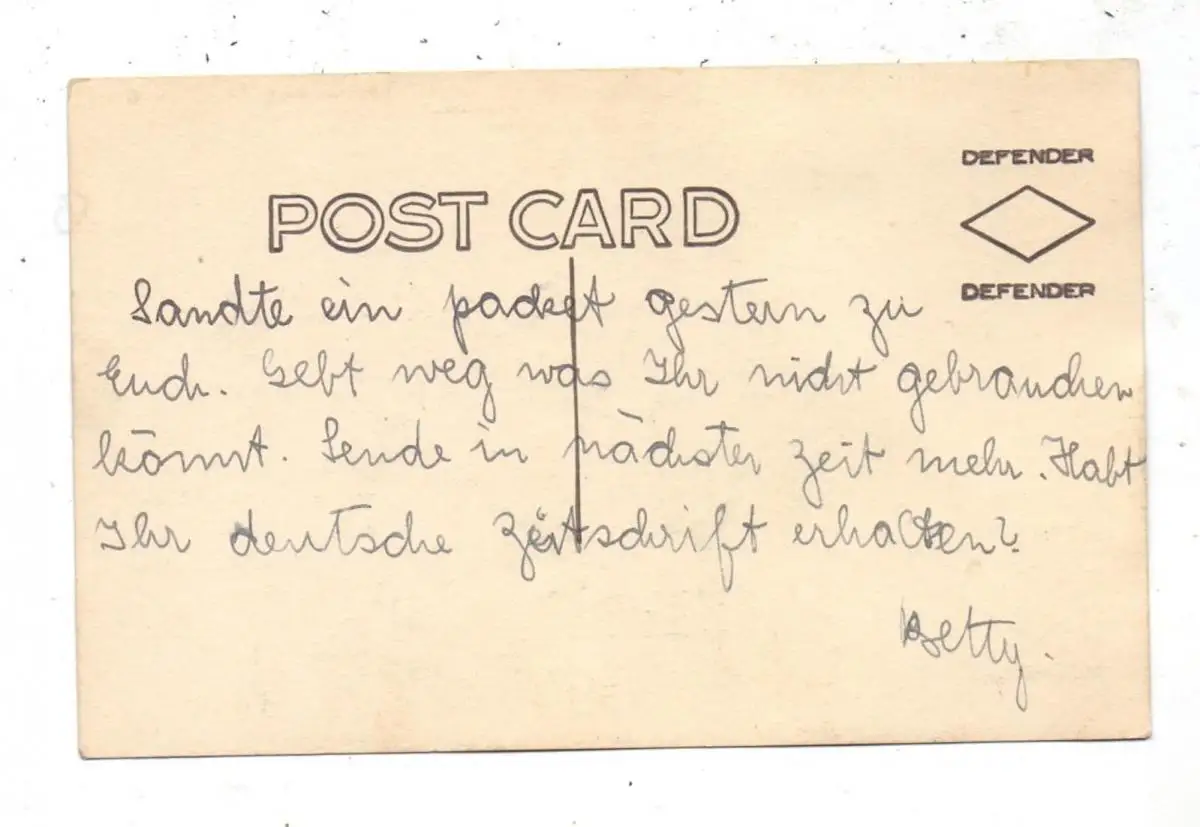 DEFENDER
POST CARD
DEFENDER
Sandte ein packet gestern zu
Euch. Gebt weg was Ihr nicht gebrauchen
könnt. Sende in nächster zeit mehr. Habt
Ihr deutsche zeitschrift erhalten?
Betty.